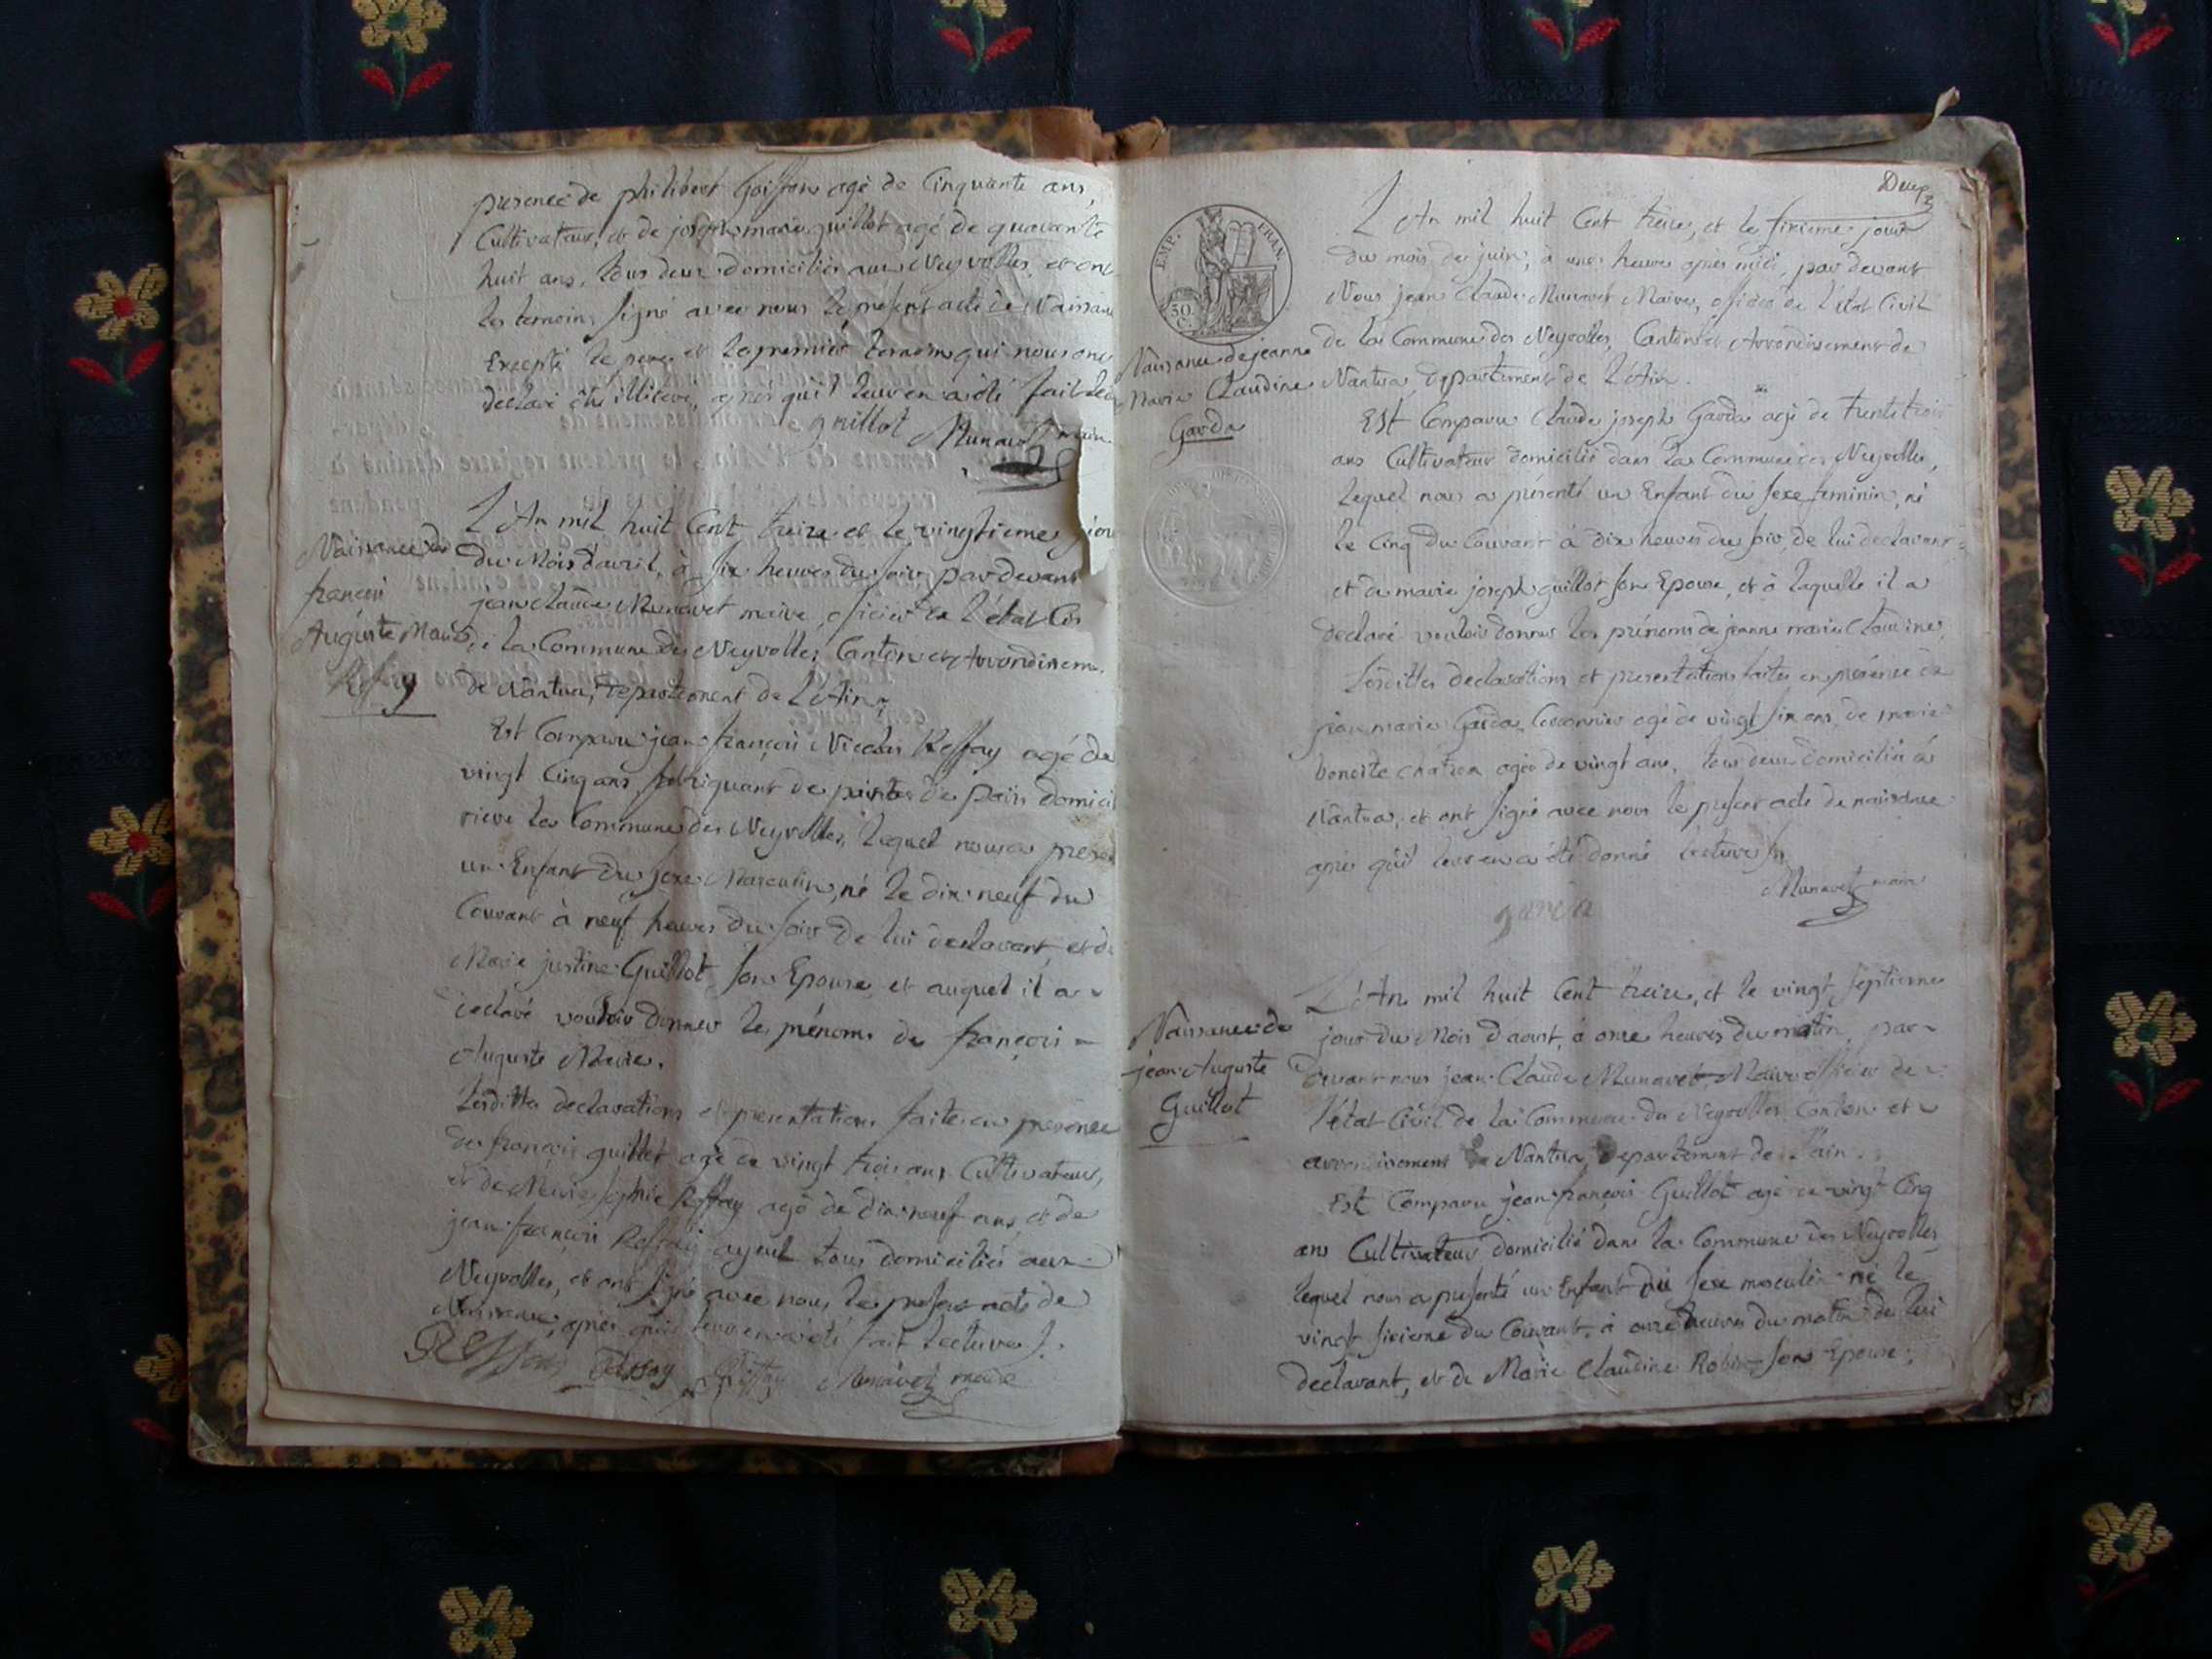 presence de philibert Goiffon agé de Cinquante ans,
Cultivateur, et de joseph marie guillot agé de quarante
huit ans, tous deux domiciliés aux Neyrolles, et ont
les temoins signé avec nous le présent acte de Naissance
Excepté le pere et le premier temoin qui nous ont
declaré être illiteré, après qu'il leur en a été fait
guillot Munavet maire
Naissance de
françois
Auguste Marie
Reffay
L'An mil huit Cent treize et le vingtieme jour
du Mois d'avril, à six heures du soir par devant
jean claude Munavet maire, officier de l'état
de la Commune des Neyrolles, Canton et Arrondissem.
de Nantua, Departement de L'Ain
Est Comparu jean françois Nicolas Reffay agé de
vingt Cinq ans fabriquant de de domici
riere la Commune des Neyrolles, lequel nous a
un Enfant du sexe Masculin, né le dix neuf du
Courant à neuf heures du soir de lui declarant, et de
Marie justine Guillot son Epouse et auquel il a
declaré vouloir donner les prénoms de françois
Auguste Marie.
Lesdittes declarations et presentations faites en presence
de françois guillot agé de vingt trois ans Cultivateur,
et de Marie sophie Reffay agé de dix neuf ans, et de
jean françois Reffay ayeul tous domiciliés aux
Neyrolles, et ont signé avec nous le present acte de
Naissance, après qu'il leur en a été fait lecture
Reffay Reffay Reffay Munavet maire
Deux
2
EMP. FRAN.
50
C.
Naissance de jeanne
Marie Claudine
Garda
L'An mil huit Cent treize, et le sixieme jour
du mois de juin, à une heure apres midi, par devant
Nous jean Claude Munavet Maire, officier de l'état Civil
de la Commune des Neyrolles, Canton et Arrondissement de
Nantua, departement de L'Ain.
Est Comparu Claude joseph Garda agé de trente trois
ans Cultivateur domicilié dans la Commune des Neyrolles,
lequel nous a présenté un Enfant du sexe feminin, né
le Cinq du Courant à dix heures du soir, de lui declarant
et de marie joseph guillot son Epouse, et à laquelle il a
declaré vouloir donner les prénoms de jeanne marie Claudine,
Lesdittes declarations et presentations faites en présence de
jean marie Garda, Cordonnier agé de vingt six ans, de marie
benoite chatron agée de vingt ans, tous deux domiciliés à
Nantua, et ont signé avec nous le present acte de naissance
après qu'il leur en a été donné lecture
Munavet maire
garda
Naissance de
jean Auguste
Guillot
L'An mil huit Cent treize, et le vingt septieme
jour du Mois d'aoust, à onze heures du matin, par
devant nous jean Claude Munavet Maire officier de
l'état Civil de la Commune des Neyrolles Canton et
arrondissement de Nantua, Departement de l'ain.
Est Comparu jean françois Guillot agé de vingt Cinq
ans Cultivateur domicilié dans la Commune des Neyrolles,
lequel nous a présenté un Enfant du sexe masculin né le
vingt sixieme du Courant, à onze heures du matin de lui
declarant, et de Marie Claudine Robin son Epouse,